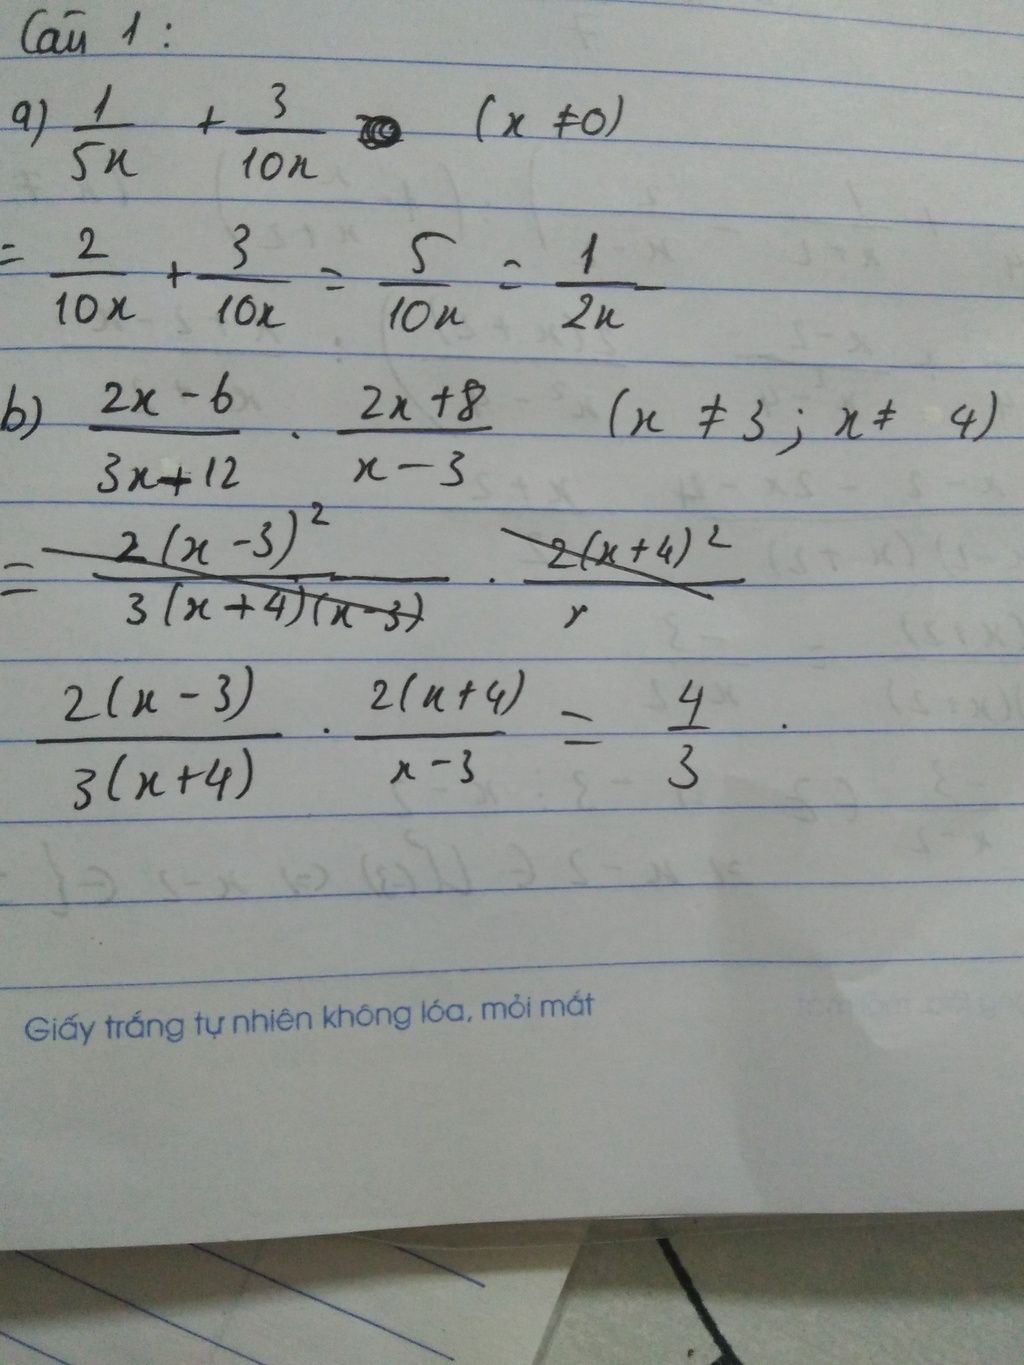 Câu 1:
a) 1/5x + 3/10x (x ≠ 0)
= 2/10x + 3/10x = 5/10x = 1/2x
b) 2x - 6/3x + 12 . 2x + 8/x - 3 (x ≠ 3; x ≠ 4)
= 2(x - 3)²/3(x + 4)(x - 3) . 2(x + 4)²/
2(x - 3)/3(x + 4) . 2(x + 4)/x - 3 = 4/3 .
Giấy trắng tự nhiên không lóa, mỏi mắt